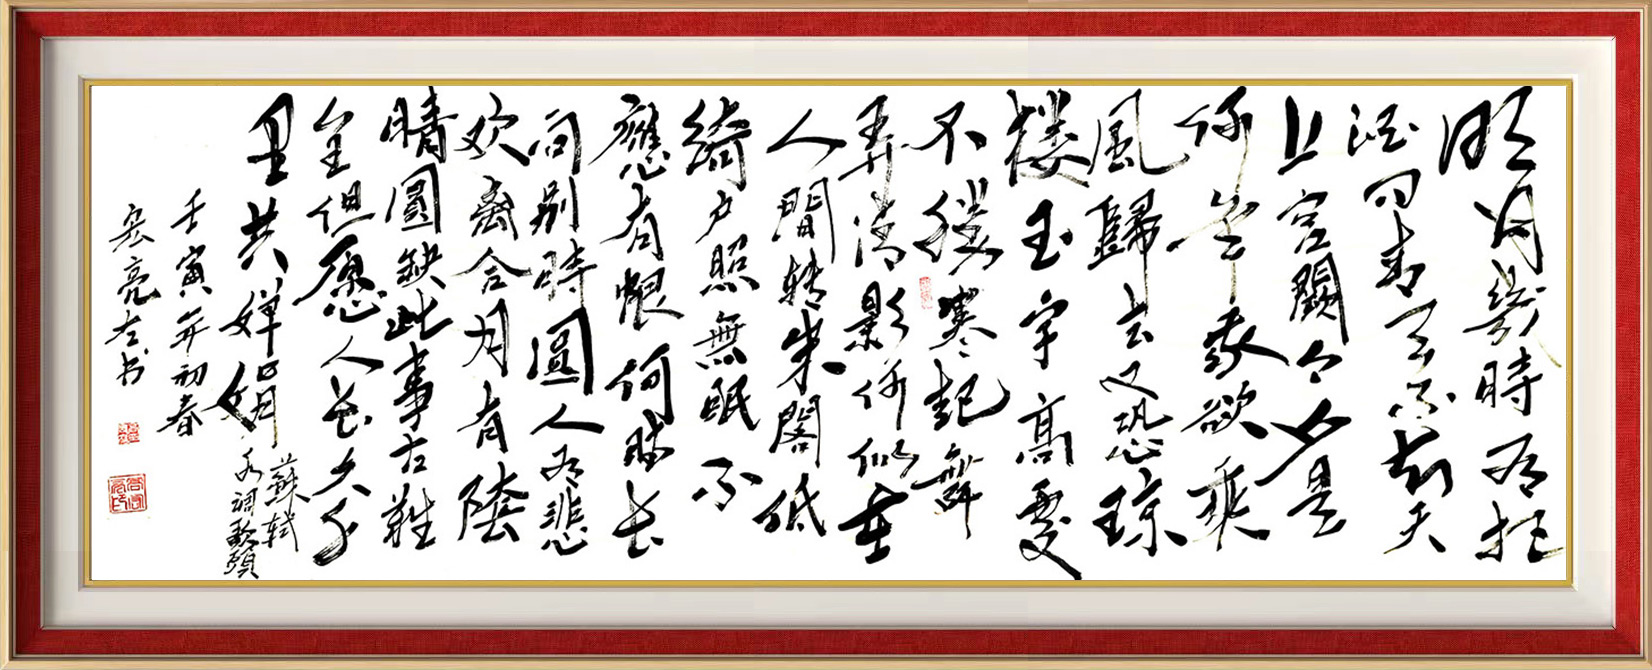 明月幾時有把
酒问青天不知天
上宫闕今夕是
何年我欲乘
風歸去又恐琼
樓玉宇高處
不勝寒起舞
弄清影何似在
人間转朱閣低
綺户照無眠不
應有恨何时长
向别時圓人有悲
欢离合月有陰
晴圓缺此事古難
全但愿人长久千
里共嬋娟
蘇軾
水调歌頭
壬寅年初春
宏亮左书